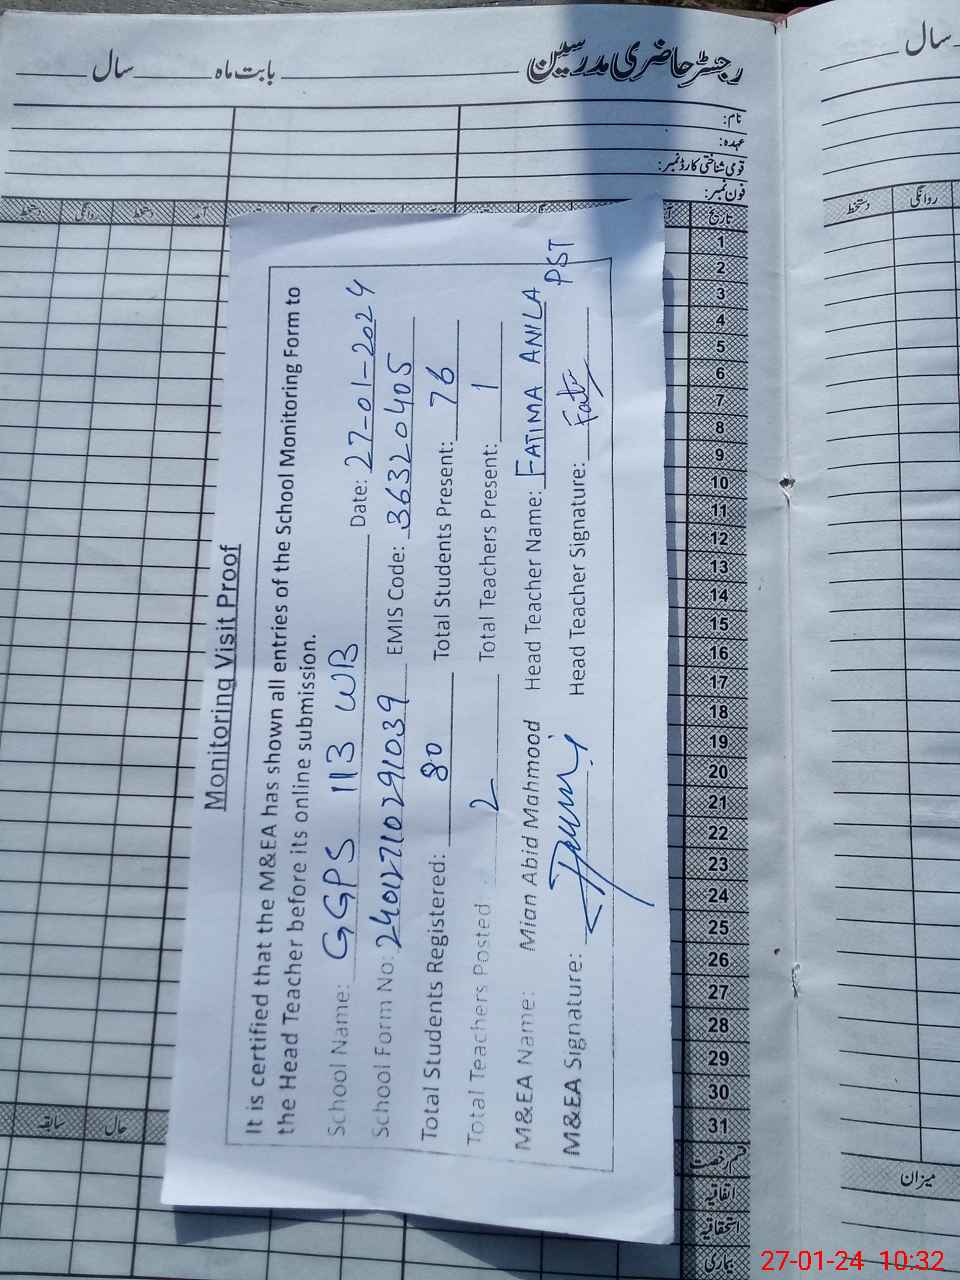 رجسٹر حاضری مدرسین
بابت ماہ
سال
سال
نام:
عہدہ:
قومی شناختی کارڈ نمبر:
فون نمبر:
تاریخ
آمد دستخط روانگی دستخط
روانگی دستخط
1
2
3
4
5
6
7
8
9
10
11
12
13
14
15
16
17
18
19
20
21
22
23
24
25
26
27
28
29
30
31
قسم رخصت
اتفاقیہ
استحقاقیہ
بیماری
حال
سابقہ
میزان
Monitoring Visit Proof
It is certified that the M&EA has shown all entries of the School Monitoring Form to
the Head Teacher before its online submission.
School Name: GGPS 113 WB Date: 27-01-2024
School Form No: 24012710291039 EMIS Code: 36320405
Total Students Registered: 80 Total Students Present: 76
Total Teachers Posted 2 Total Teachers Present: 1
M&EA Name: Mian Abid Mahmood Head Teacher Name: FATIMA ANILA PST
M&EA Signature: Head Teacher Signature:
27-01-24 10:32